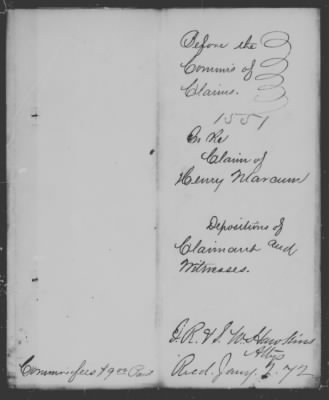 Before the
Commis of
Claims.
1551
In Re
Claim of
Henry Marcum
Depositions of
Claimant and
Witnesses.
J. R. & J. W. Hawkins
Attys
Recd. Jany. 2. 72
Commrs fees $9.00 Paid